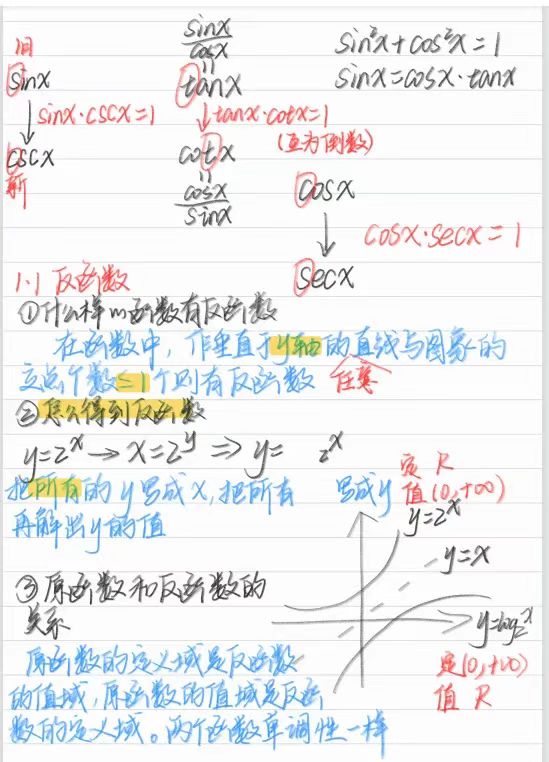 旧
sinx
sinx·cscx=1
cscx
新
sinx/cosx
=
tanx
tanx·cotx=1
(互为倒数)
cotx
=
cosx/sinx
sin²x+cos²x=1
sinx=cosx·tanx
cosx
cosx·secx=1
secx
1.1 反函数
①什么样的函数有反函数
在函数中,作垂直于y轴的直线与图象的
交点个数≤1个则有反函数 任意
②怎么得到反函数
y=2ˣ→x=2ʸ⇒y= 2ˣ
把所有的y写成x,把所有 写成y
再解出y的值
定 R
值(0,+∞)
y=2ˣ
y=x
y=log₂ˣ
定(0,+∞)
值 R
③原函数和反函数的
关系
原函数的定义域是反函数
的值域,原函数的值域是反函
数的定义域。两个函数单调性一样